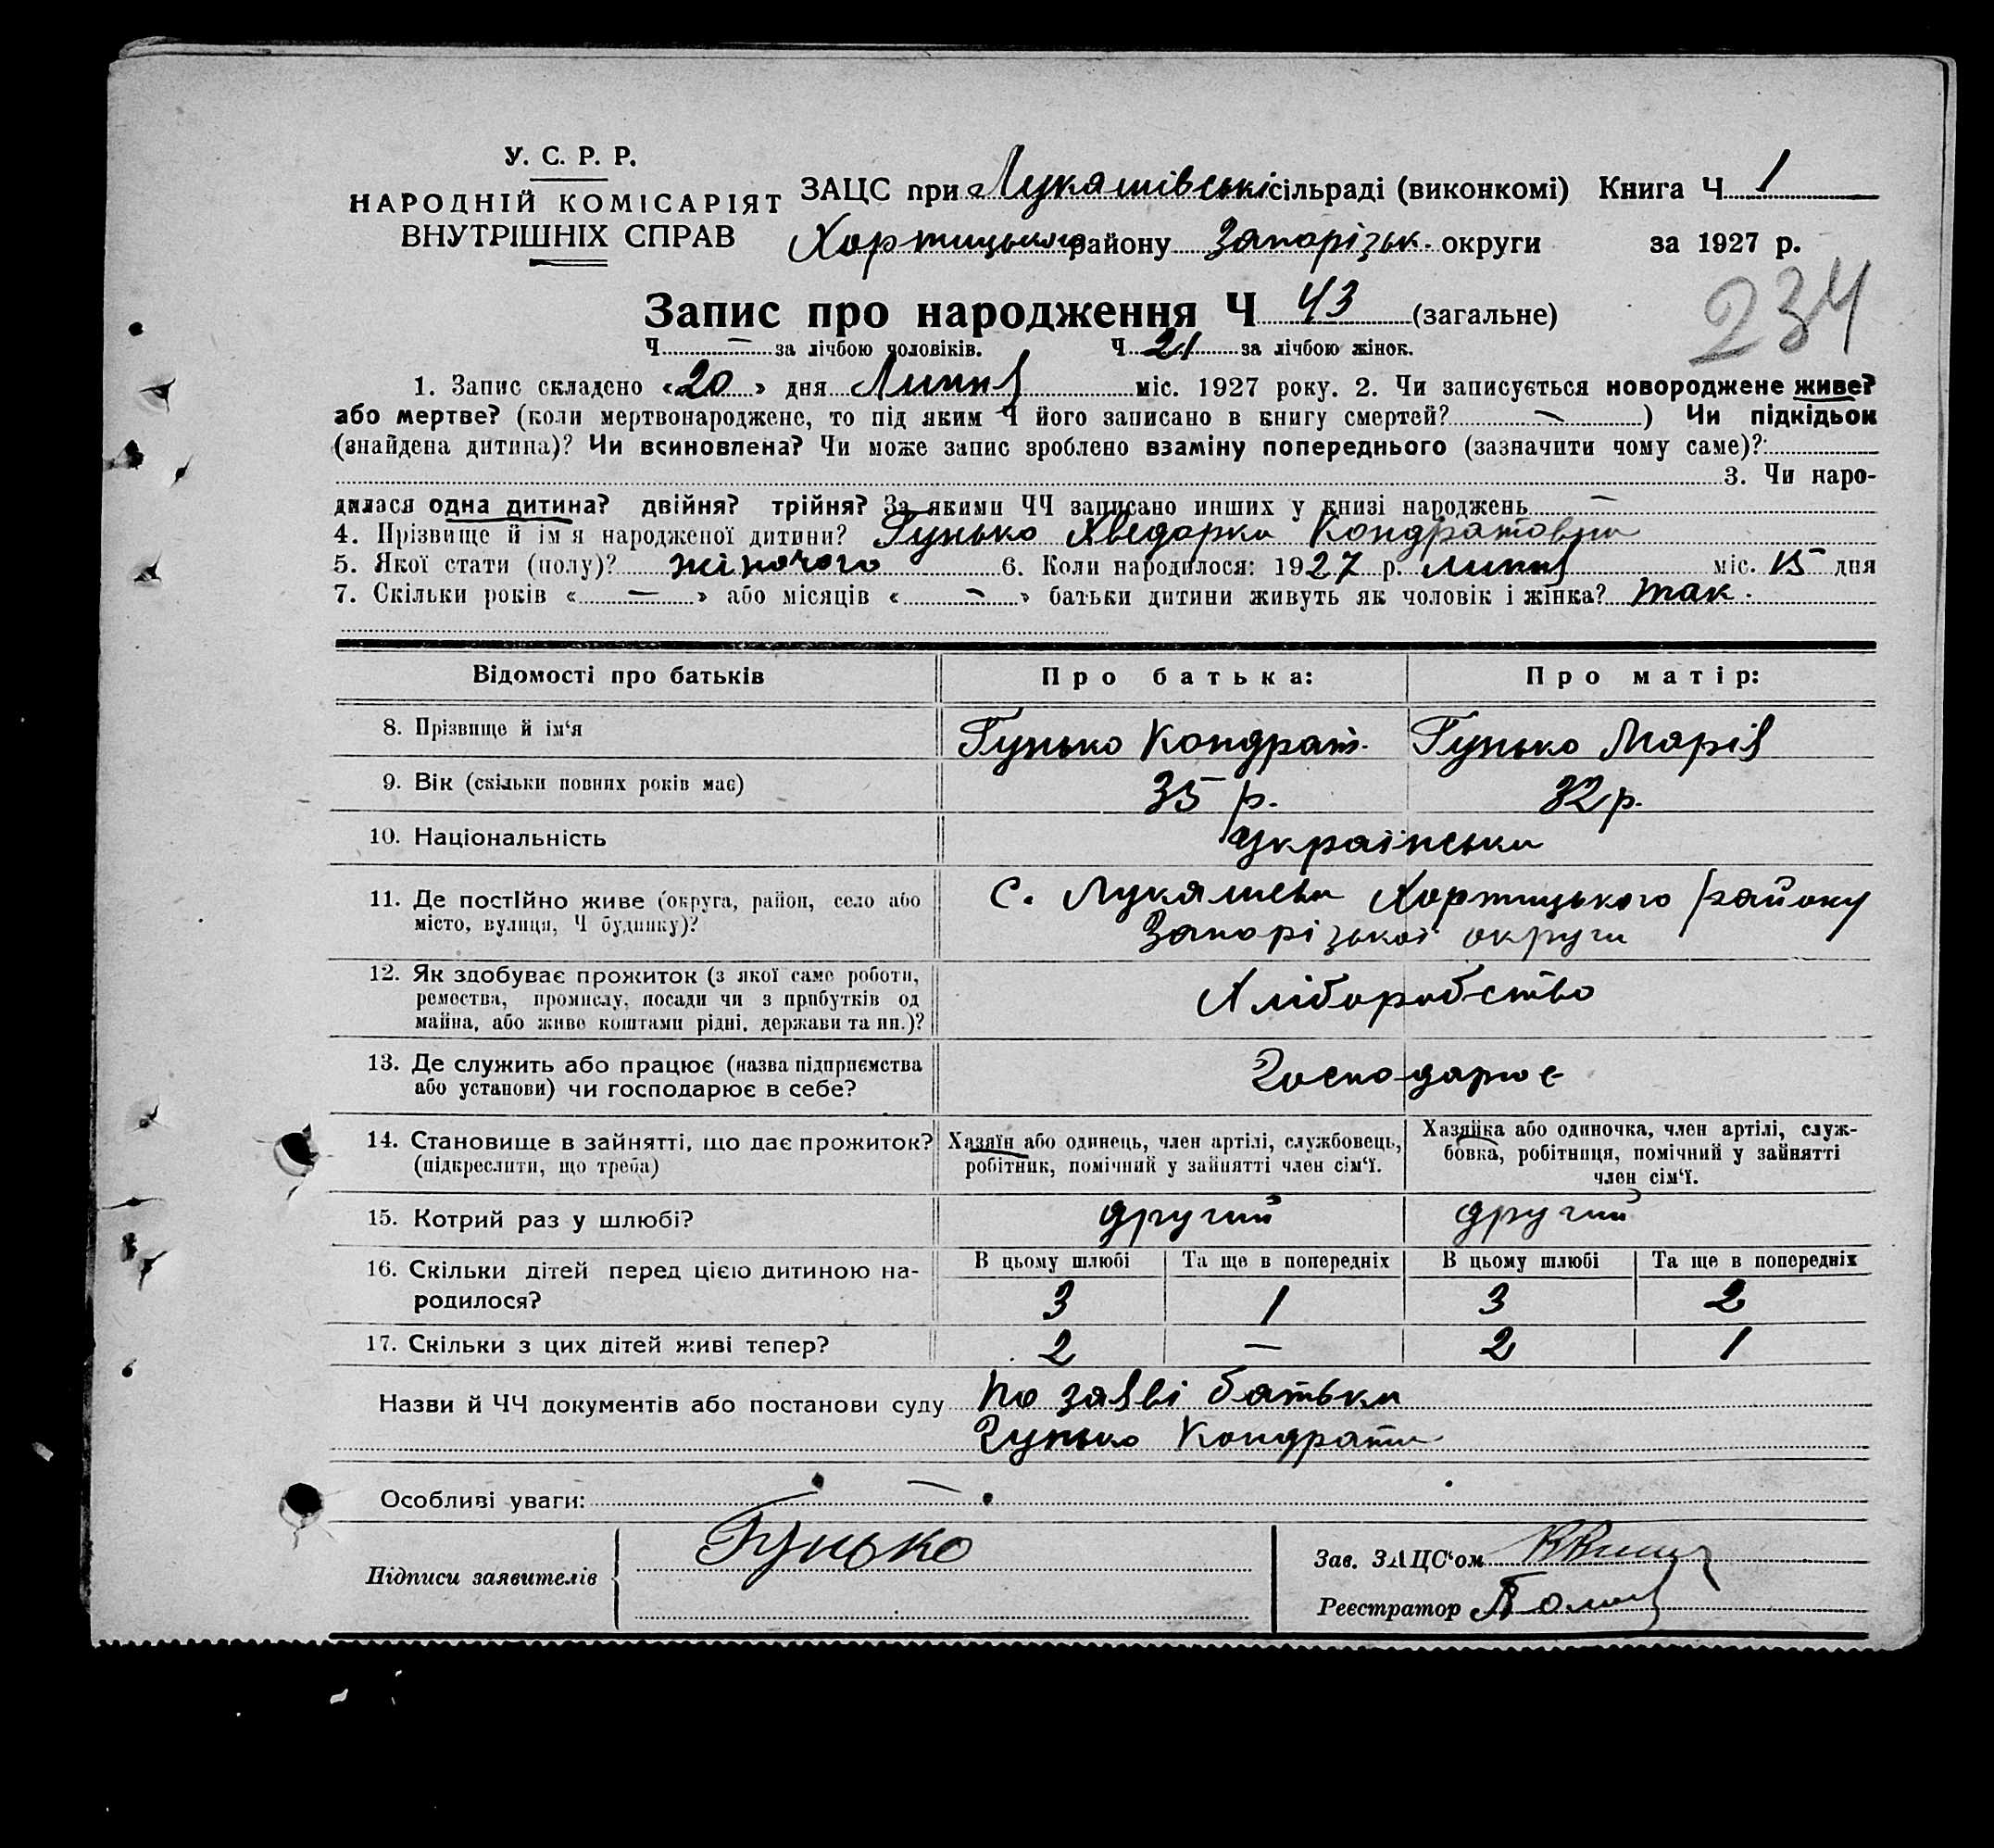 У. С. Р. Р.
НАРОДНІЙ КОМІСАРІЯТ
ВНУТРІШНІХ СПРАВ
ЗАЦС при Лукашівські сільраді (виконкомі) Книга Ч 1
Хортицького району Запорізьк. округи за 1927 р.
234
Запис про народження Ч 43 (загальне)
Ч — за лічбою чоловіків. Ч 21 за лічбою жінок.
1. Запис складено «20» дня Липня міс. 1927 року. 2. Чи записується новороджене живе?
або мертве? (коли мертвонароджене, то під яким Ч його записано в книгу смертей? — ) Чи підкідьок
(знайдена дитина)? Чи всиновлена? Чи може запис зроблено взаміну попереднього (зазначити чому саме)?
3. Чи наро-
дилася одна дитина? двійня? трійня? За якими ЧЧ записано инших у книзі народжень —
4. Прізвище й ім'я народженої дитини? Гунько Хведорка Кондратовна
5. Якої стати (полу)? жіночого 6. Коли народилося: 1927 р. липня міс. 15 дня
7. Скільки років «—» або місяців «—» батьки дитини живуть як чоловік і жінка? так.
Відомості про батьків Про батька: Про матір:
8. Прізвище й ім'я Гунько Кондрат. Гунько Марія
9. Вік (скільки повних років має) 35 р. 32 р.
10. Національність українська
11. Де постійно живе (округа, район, село або С. Лукашева Хортицького району
місто, вулиця, Ч будинку)? Запорізької округи
12. Як здобуває прожиток (з якої саме роботи,
ремества, промислу, посади чи з прибутків од Хліборобство
майна, або живе коштами рідні, держави та ин.)?
13. Де служить або працює (назва підприємства Господарює
або установи) чи господарює в себе?
14. Становище в зайнятті, що дає прожиток? Хазяїн або одинець, член артілі, службовець, Хазяйка або одиночка, член артілі, служ-
(підкреслити, що треба) робітник, помічний у зайнятті член сім'ї. бовка, робітниця, помічний у зайнятті
член сім'ї.
15. Котрий раз у шлюбі? другий другий
16. Скільки дітей перед цією дитиною на- В цьому шлюбі Та ще в попередніх В цьому шлюбі Та ще в попередніх
родилося? 3 1 3 2
17. Скільки з цих дітей живі тепер? 2 — 2 1
Назви й ЧЧ документів або постанови суду По заяві батька
Гунько Кондрата
Особливі уваги: —
Підписи заявителів Гунько Зав. ЗАЦС'ом
Реєстратор